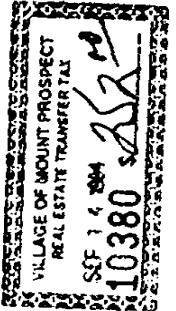 VILLAGE OF MOUNT PROSPECT
REAL ESTATE TRANSFER TAX
SEP 14 1994
10380 $ 252.00